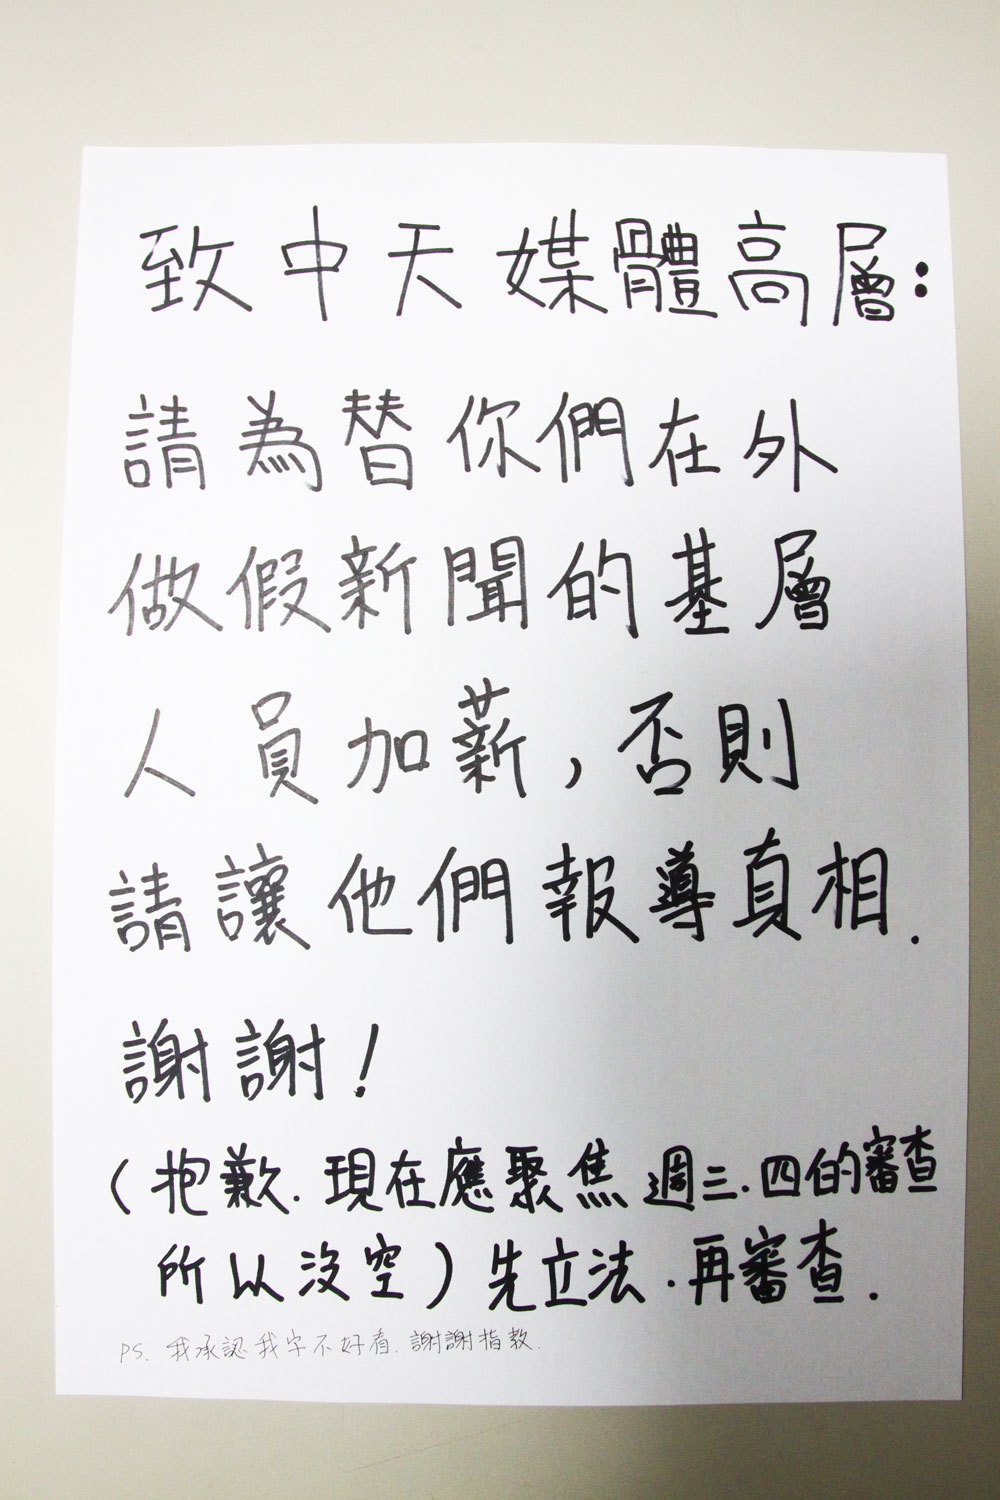 致中天媒體高層:
請為替你們在外
做假新聞的基層
人員加薪,否則
請讓他們報導真相.
謝謝!
(抱歉.現在應聚焦週三.四的審查
所以沒空)先立法.再審查.
PS. 我承認我字不好看.謝謝指教.